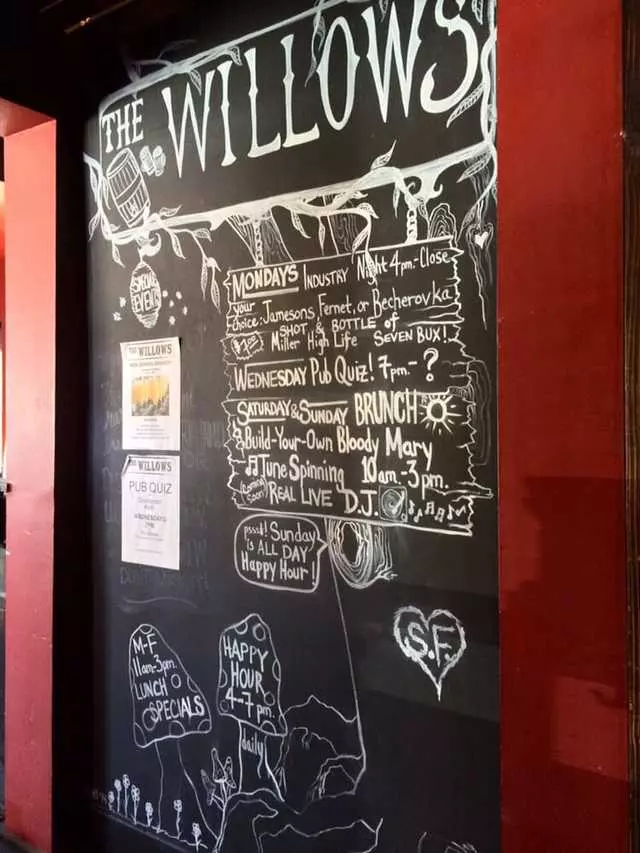 THE WILLOWS
SPECIAL
EVENTS
MONDAYS INDUSTRY Night 4pm.-Close
your
choice: Jamesons, Fernet, or Becherovka
SHOT & BOTTLE of
Miller High Life SEVEN BUX!
WEDNESDAY Pub Quiz! 7pm.-?
SATURDAY & SUNDAY BRUNCH
Build-Your-Own Bloody Mary
Tune Spinning 10am-3pm.
(coming soon) REAL LIVE D.J.
THE WILLOWS
THE WILLOWS
PUB QUIZ
WEDNESDAYS
7PM
pssst! Sunday
is ALL DAY
Happy Hour!
S.F.
M-F
11am-3pm.
LUNCH
SPECIALS
HAPPY
HOUR
4-7pm.
daily